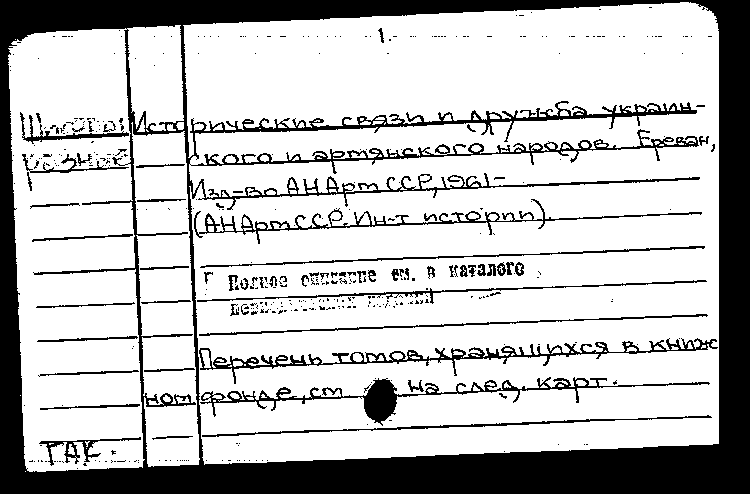 1.
Шифры Исторические связи и дружба украин-
разные ского и армянского народов. Ереван,
Изд-во АН Арм ССР, 1961-
(АН Арм ССР. Ин-т истории).
Полное описание см. в каталоге
периодических изданий
Перечень томов, хранящихся в книж
ном фонде, см на след. карт.
ТАК.